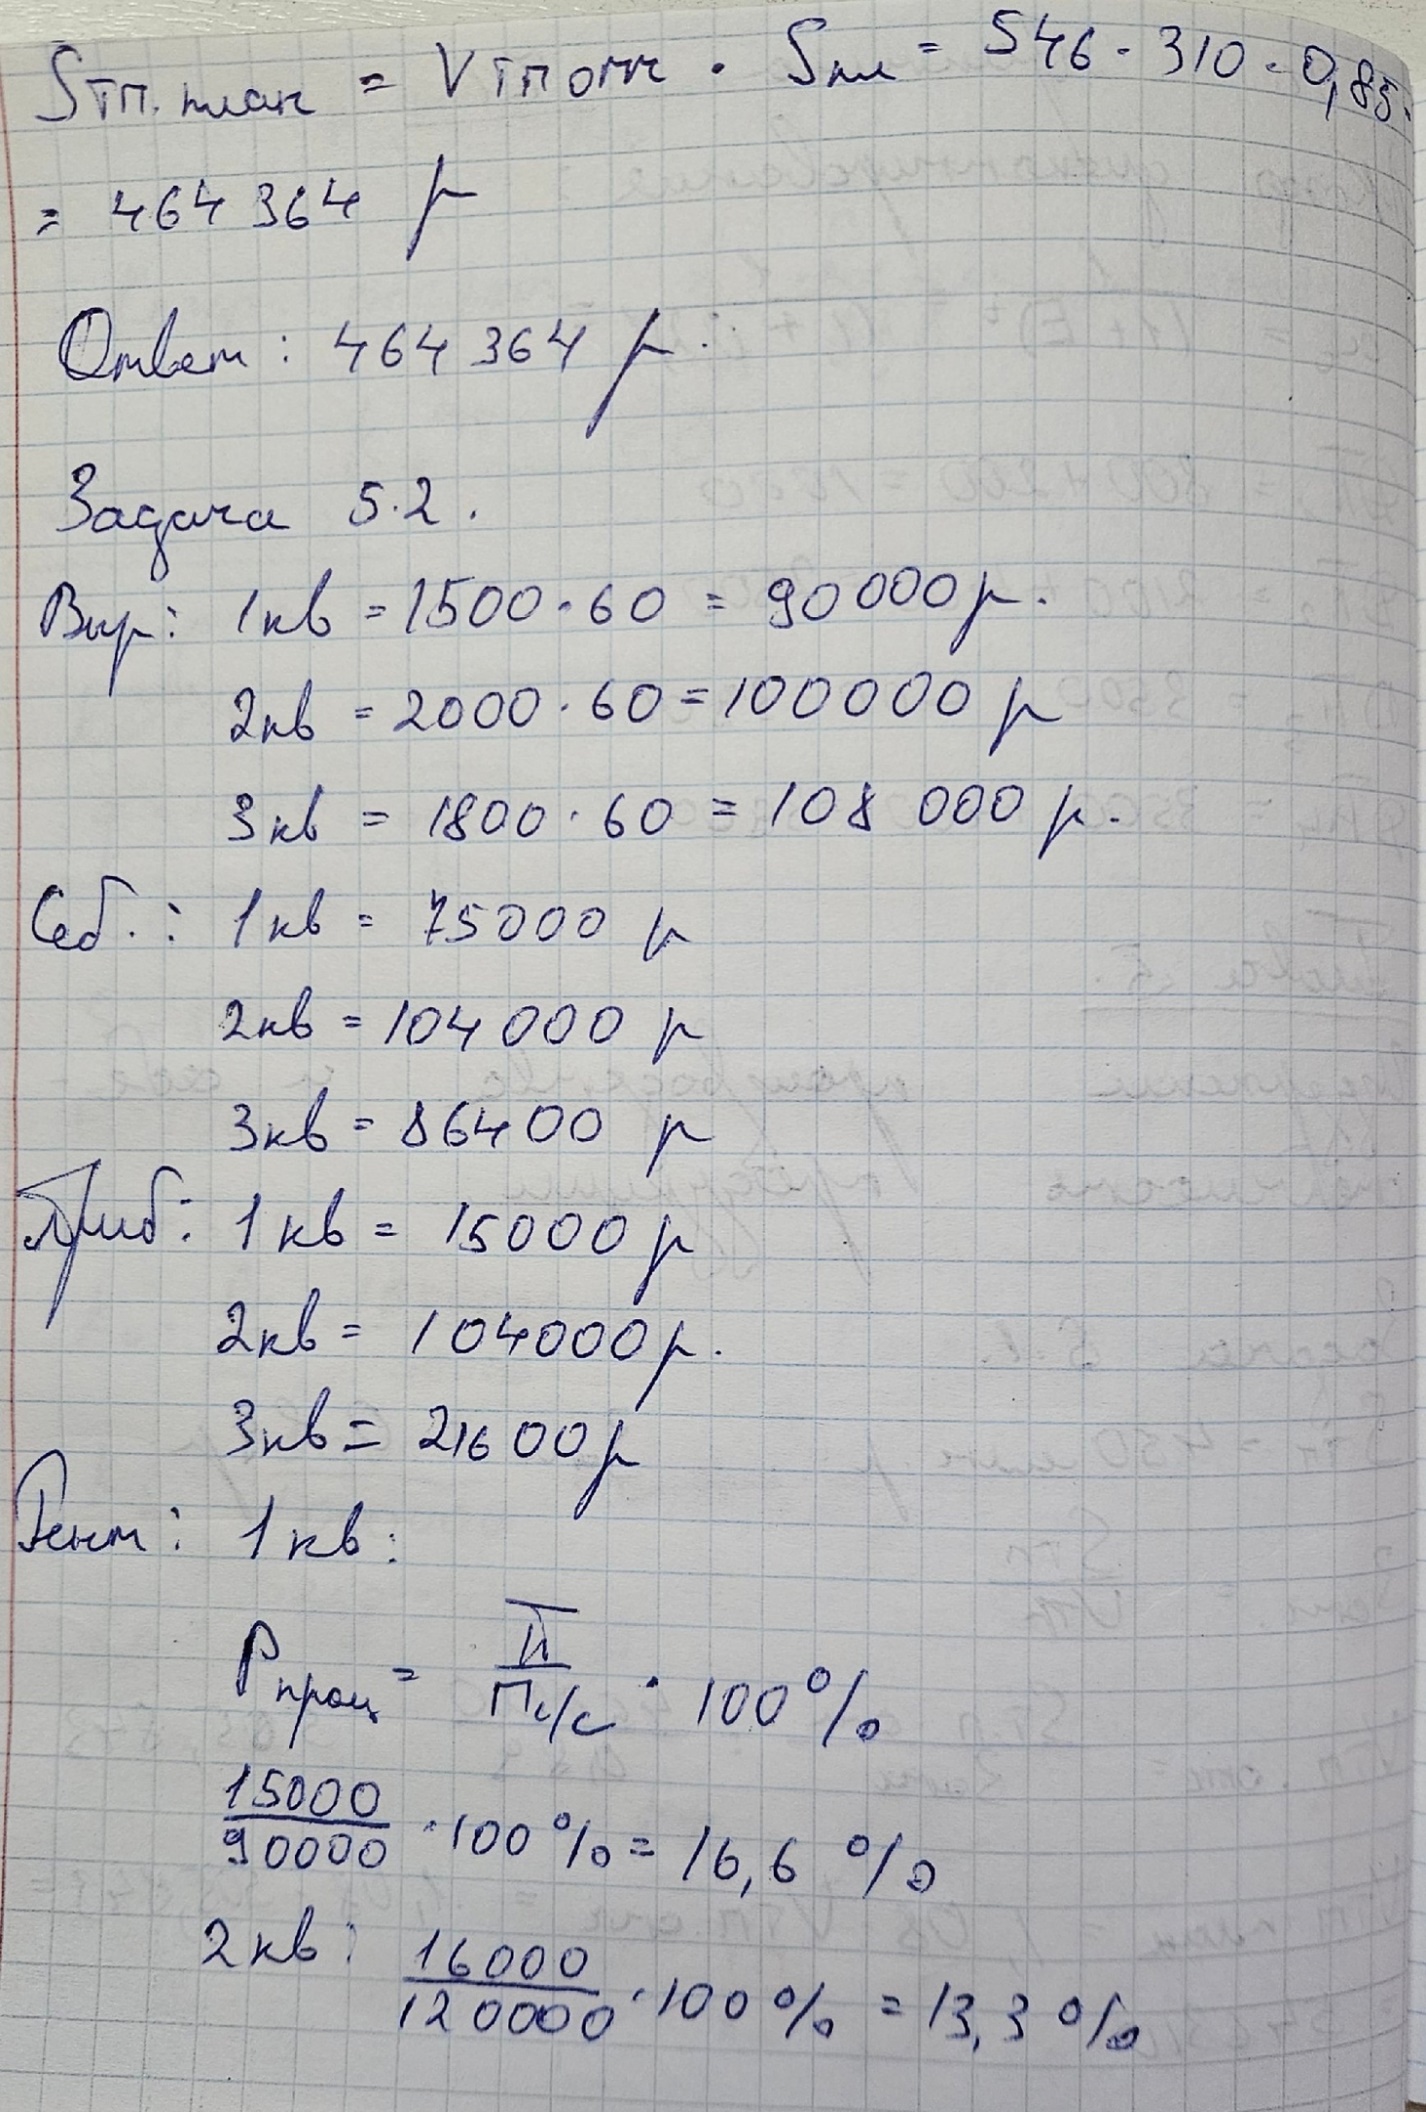 Sтп.план = Vтп отч · Sпл = 546 · 310 · 0,85.
= 464 364 р
Ответ: 464 364 р.
Задача 5.2.
Выр: 1кв = 1500 · 60 = 90 000 р.
2кв = 2000 · 60 = 100 000 р
3кв = 1800 · 60 = 108 000 р.
Себ.: 1кв = 75000 р
2кв = 104 000 р
3кв = 86400 р
Приб: 1кв = 15000 р
2кв = 104000 р.
3кв = 21600 р
Рент: 1кв:
Pпрод = П/Пс/с · 100 %
15000/90000 · 100 % = 16,6 %
2кв: 16000/120000 · 100 % = 13,3 %